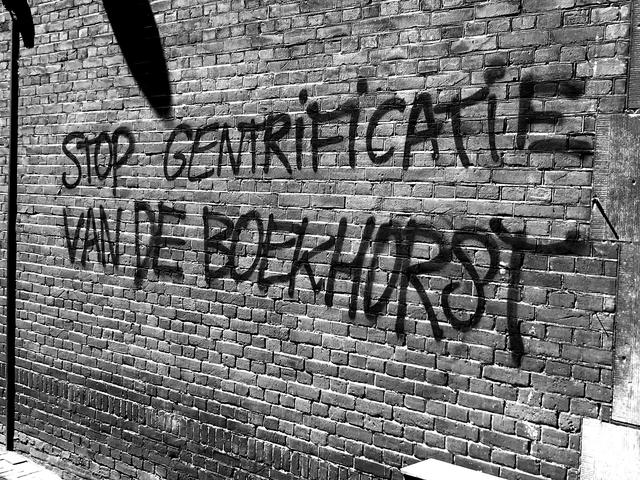 STOP GENTRIFICATIE
VAN DE BOEKHORST